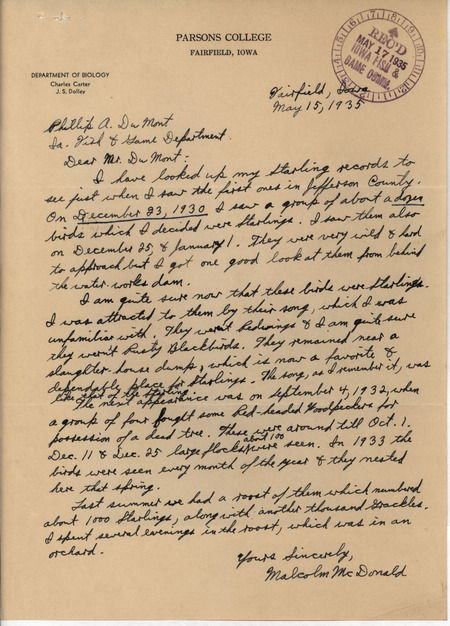 PARSONS COLLEGE
FAIRFIELD, IOWA
REC'D
MAY 17 1935
IOWA FISH &
GAME COMM.
DEPARTMENT OF BIOLOGY
Charles Carter
J. S. Dolley
Fairfield, Iowa
May 15, 1935
Phillip A. DuMont
Ia. Fish & Game Department.
Dear Mr. DuMont:
I have looked up my starling records to
see just when I saw the first ones in Jefferson County.
On December 23, 1930 I saw a group of about a dozen
birds which I decided were Starlings. I saw them also
on December 25, & January 1. They were very wild & hard
to approach but I got one good look at them from behind
the water works dam.
I am quite sure now that these birds were Starlings.
I was attracted to them by their song, which I was
unfamiliar with. They weren't Redwings & I am quite sure
they weren't Rusty Blackbirds. They remained near a
slaughter house dump, which is now a favorite &
dependable place for Starlings. The song, as I remember it, was
like that of the Starling.
The next appearance was on September 4, 1932, when
a group of four fought some Red-headed Woodpeckers for
possession of a dead tree. These were around till Oct. 1.
Dec. 11 & Dec. 25 large flocks about 100 were seen. In 1933 the
birds were seen every month of the year & they nested
here that spring.
Last summer we had a roost of them which numbered
about 1000 Starlings, along with another thousand Grackles.
I spent several evenings in the roost, which was in an
orchard.
Yours Sincerely,
Malcolm McDonald